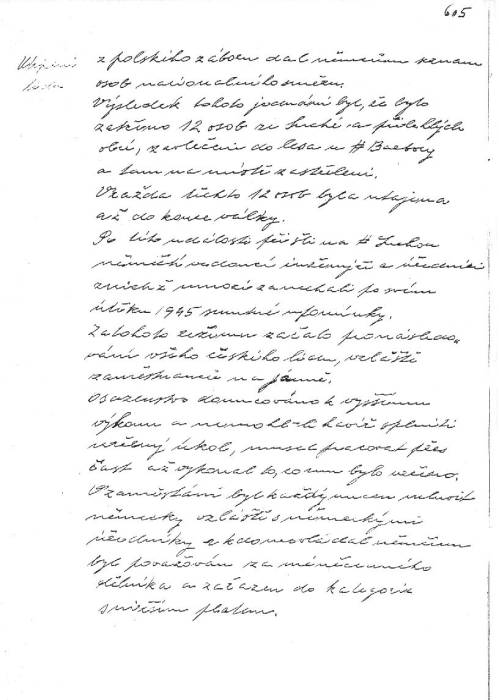 605
Utrpení
lidu
z polského záboru dal němcům seznam
osob nacionalního směru.
Výsledek tohoto jednání byl, že bylo
zatčeno 12 osob ze Suché a přilehlých
obcí, zavlečeni do lesa u # Barbory
a tam na místě zastřeleni.
Vražda těchto 12 osob byla utajena
až do konce války.
Po této události přišli na #
němečtí vedoucí inženýři a úředníci
z nichž mnozí zanechali po svém
útěku 1945 smutné vzpomínky.
Za tohoto režimu začalo pronásledo-
vání všeho českého lidu, zvláště
zaměstnanců na jámě.
Osazenstvo donucováno k vyššímu
výkonu a nemohl-li havíř splniti
určený úkol, musel pracovat přes
čas až vykonal to, co mu bylo určeno.
V zaměstání byl každý nucen mluvit
německy zvláště s německými
úředníky a kdo neovládal němčinu
byl považován za méněcenného
dělníka a zařazen do kategorie
s nižším platem.